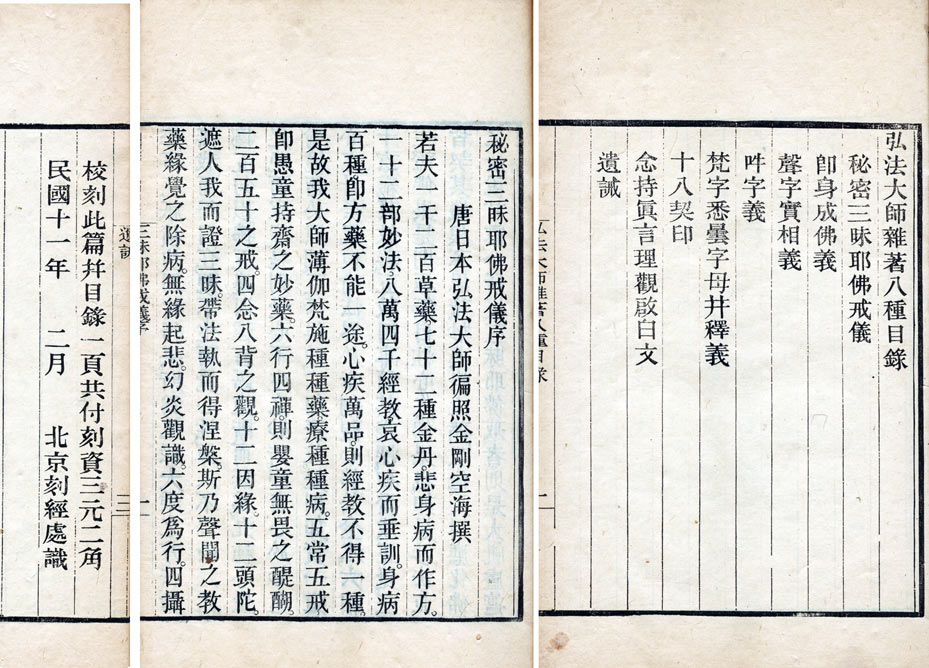 弘法大師雜著八種目錄
秘密三昧耶佛戒儀
卽身成佛義
聲字實相義
吽字義
梵字悉曇字母幷釋義
十八契印
念持眞言理觀啟白文
遺誡
弘法大師雜著八種目錄
一
秘密三昧耶佛戒儀序
唐日本弘法大師徧照金剛空海撰
若夫一千二百草藥七十二種金丹。悲身病而作方。
一十二部妙法。八萬四千經教。哀心疾而垂訓。身病
百種卽方藥不能一途。心疾萬品。則經教不得一種。
是故我大師薄伽梵施種種藥療種種病。五常五戒
卽愚童持齋之妙藥六行四禪。則嬰童無畏之醍醐。
二百五十之戒。四念八背之觀。十二因緣。十二頭陀。
遮人我而證三昧。帶法執而得涅槃。斯乃聲聞之教
藥緣覺之除病。無緣起悲。幻炎觀識。六度爲行。四攝
三昧耶佛戒儀序
一
遺誡
三
校刻此篇幷目錄一頁共付刻資三元二角
民國十一年 二月 北京刻經處識